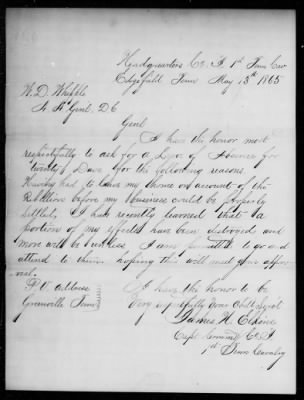 Headquarters Co. I 1st Tenn Cav
Edgefield Tenn May 13th 1865
W. D. Whipple
A. A. Genl. D. C
Genl
I have the honor most
respectfully to ask for a Leave of Absence for
twenty Days for the following reasons.
Having had to leave my home on account of the
Rebellion before my business could be properly
settled. I have recently learned that a
portion of my effects have been destroyed and
more will be unless I am permitted to go and
attend to them hoping this will meet your appro
val.
P. O. address
Greenville Tenn
I have the honor to be
Very respectfully your Obdt Servt
James H.
Capt Commdg Co. I
1st Tenn Cavalry